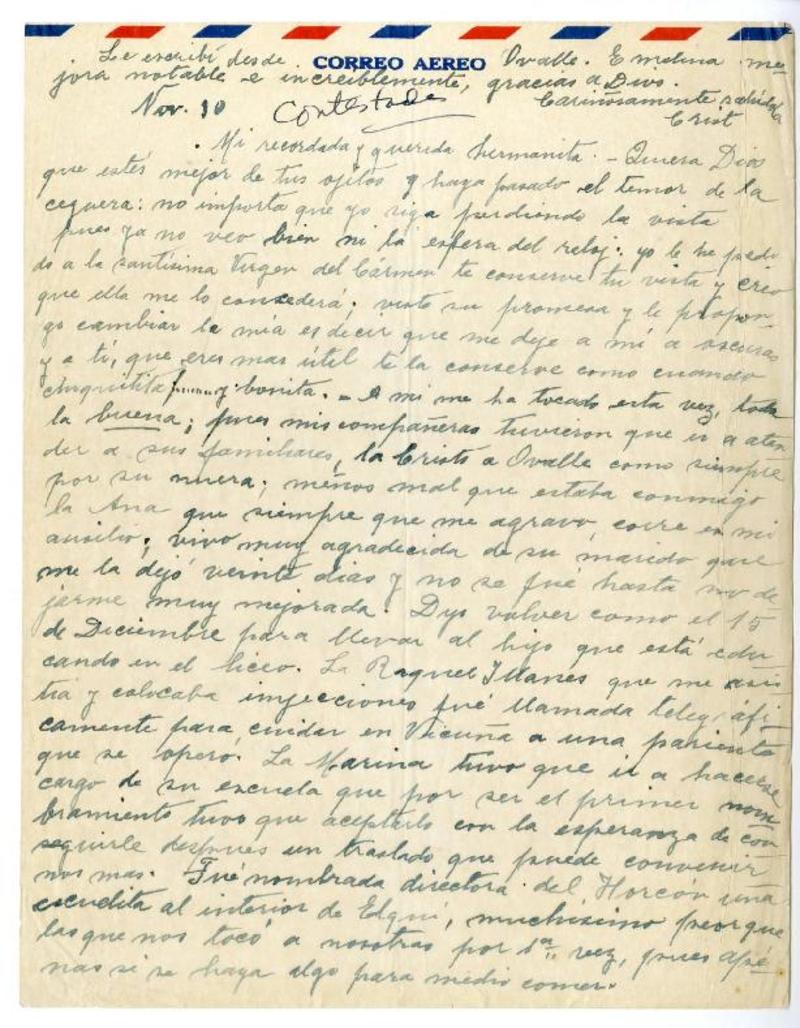 Le escribí desde CORREO AEREO Ovalle. Emelina me-
jora notable e increiblemente, gracias a Dios.
Nov. 30 Contestada Cariñosamente saluda
Crist
Mi recordada y querida hermanita. - Quiera Dios
que estés mejor de tus ojitos y haya pasado el temor de la
ceguera: no importa que yo siga perdiendo la vista
pues ya no veo bien ni la esfera del reloj: yo le he pedi
do a la santísima Virgen del Cármen te conserve tu vista y creo
que ella me lo consederá; visto su promesa y le propon-
go cambiar la mía es decir que me deje a mí a oscuras
y a ti, que eres mas útil te la conserve como cuando
chiquitita y bonita. - A mi me ha tocado esta vez, toda
la buena; pues mis compañeras tuvieron que ir a aten
der a sus familiares, la Cristi a Ovalle como siempre
por su nuera; menos mal que estaba conmigo
la Ana que siempre que me agravo, corre en mi
ausilio; vivo muy agradecida de su marido que
me la dejó veinte dias y no se fué hasta no de
jarme muy mejorada. Dijo volver como el 15
de Diciembre para llevar al hijo que está edu
cando en el liceo. La Raquel Illanes que me asis
tía y colocaba injecciones fué llamada telegráfi
camente para cuidar en Vicuña a una parienta
que se operó. La Marina tuvo que ir a hacerse
cargo de su escuela que por ser el primer nom
bramiento tuvo que aceptarlo con la esperanza de con
seguirle despues un traslado que puede convenir
nos mas. Fué nombrada directora del Horcón una
escuelita al interior de Elqui, muchísimo peor que
las que nos tocó a nosotras por 1ª vez, pues apé
nas si se haya algo para medio comer.